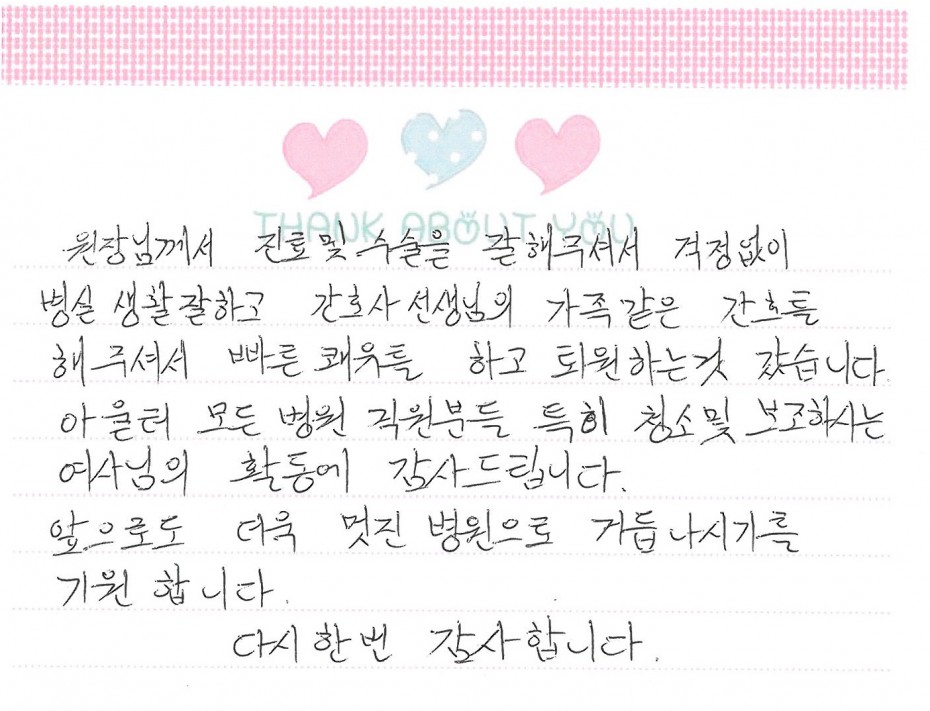 THANK ABOUT YOU
원장님께서 진료및 수술을 잘해주셔서 걱정없이
병실 생활잘하고 간호사선생님의 가족같은 간호를
해주셔서 빠른 쾌유를 하고 퇴원하는것 같습니다.
아울터 모든 병원 직원분들 특히 청소및 보조하시는
여사님의 활동에 감사드립니다.
앞으로도 더욱 멋진 병원으로 거듭나시기를
기원 합니다.
다시한번 감사합니다.